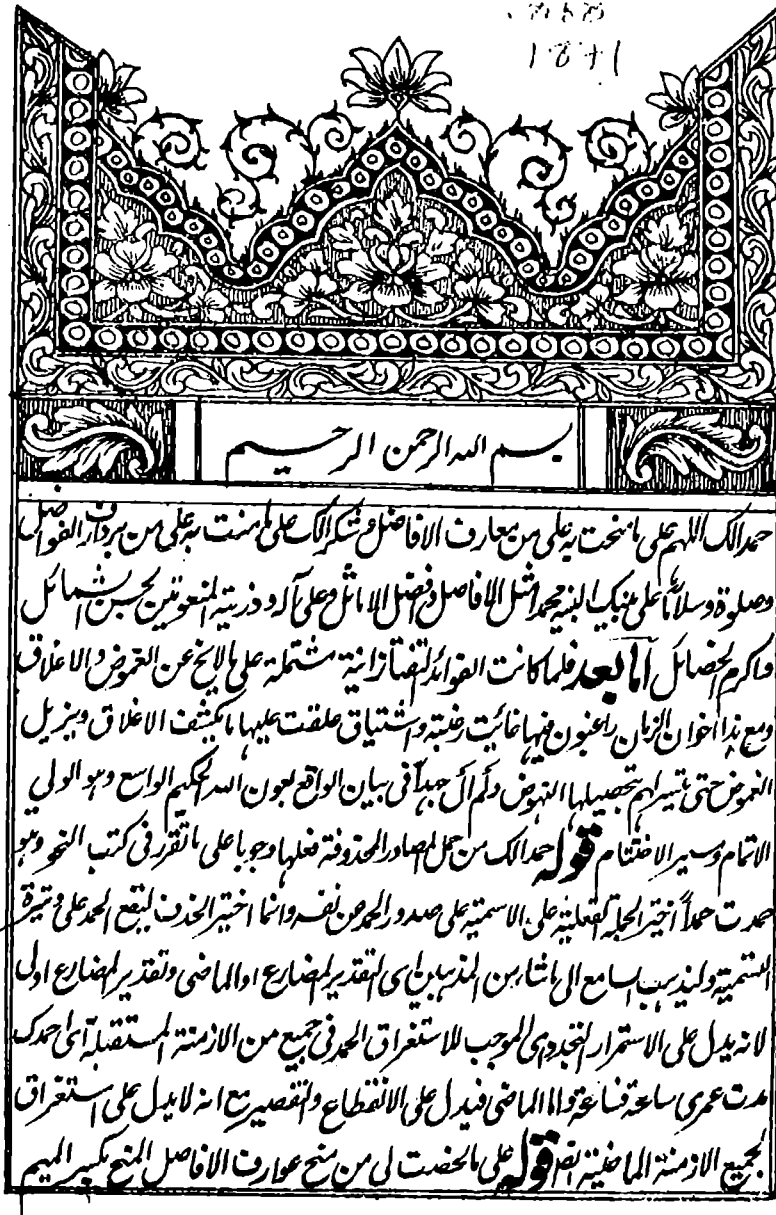 بسم الله الرحمن الرحيم
حمدالك اللهم على ما منحت به على من معارف الافاضل و شكرالك على ما مننت به على من الفواضل
وصلوة وسلاما على نبيك النبيه محمد امثل الافاضل وافضل الاماثل وعلى آله وذريته المنعوتين بحسن الشمائل
واكرم الخصائل اما بعد فلما كانت الفوائد التفتازانية مشتملة على مالايخ عن الغموض والاغلاق
ومع هذا اخوان الزمان راغبون فيها غائيت رغبته واشتياق علقت عليها ما يكشف الاغلاق ويزيل
الغموض حتى يتيسر لهم بتحصيلها النهوض ولم آل جهدا فى بيان الواقع بعون الله الحكيم الواسع وهو الولي
الاتمام وميسر الاختتام قوله حمدالك من جمل المصادر المحذوفة فعلها وجوبا على ما تقرر فى كتب النحو وهو
حمدت حمدا اختير الجملة الفعلية على الاسمية على صدور الحمد من نفسه وانما اختير الحذف ليقع الحمد على وتيرة
التسمية وليذهب السامع الى ما شاء من المذهبين اى لتقدير المضارع او الماضى وتقدير المضارع اولى
لانه يدل على الاستمرار التجددى الموجب للاستغراق الحمد فى جميع من الازمنة المستقبلة اى احمدك
مدت عمرى ساعة فساعة واما الماضى فيدل على الانقطاع والتقصير مع انه لا يدل على استغراق
لجميع الازمنة الماضية ايضا قوله على ما لخصت لى من منح عوارف الافاضل المنح بكسر الميم